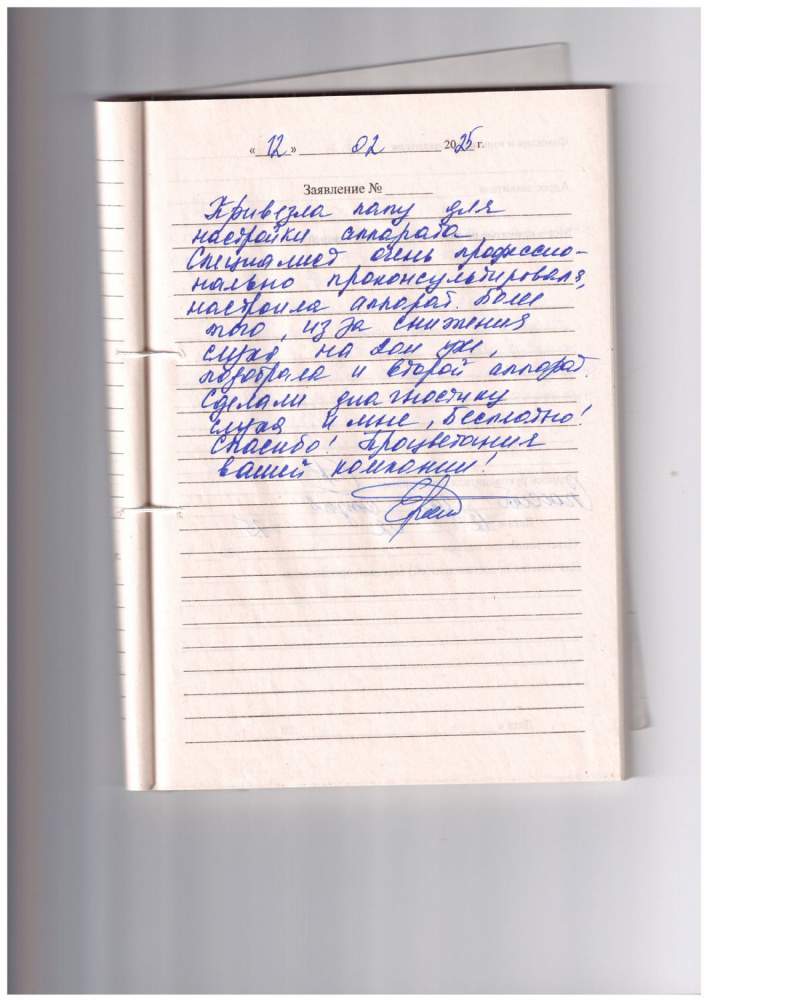 « 12 » 02 2025 г.
Заявление №
Привезла папу для
настройки аппарата
Специалист очень профессио-
нально проконсультировала,
настроила аппарат. Более
того, из за снижения
слуха на
подобрала и второй аппарат.
Сделали диагностику
слуха и мне, бесплатно!
Спасибо! Процветания
вашей компании!